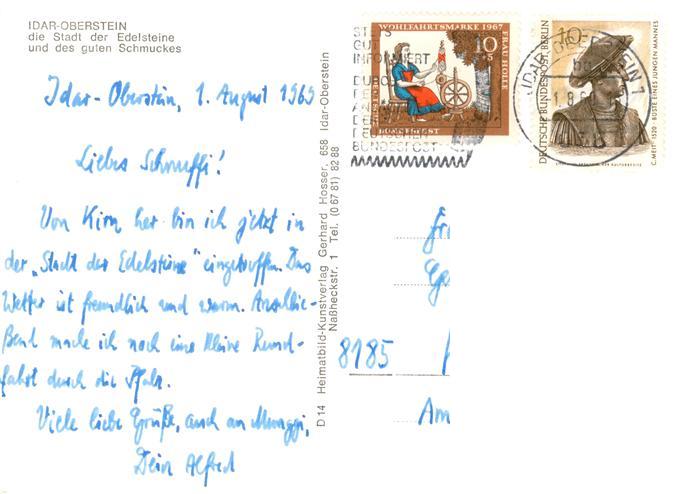 IDAR-OBERSTEIN
die Stadt der Edelsteine
und des guten Schmuckes
Idar-Oberstein, 1. August 1969
Liebes Schnuffi!
Von Kirn her bin ich jetzt in
der „Stadt der Edelsteine" eingetroffen. Das
Wetter ist freundlich und warm. Anschlie-
ßend mache ich noch eine kleine Rund-
fahrt durch die Pfalz.
Viele liebe Grüße, auch an Munggi,
Dein Alfred
D 14 Heimatbild-Kunstverlag Gerhard Hosser, 658 Idar-Oberstein
Naßheckstr. 1 Tel. (0 67 81) 82 88
STETS
GUT
INFORMIERT
DURCH
DER
DEUTSCHEN
BUNDESPOST
WOHLFAHRTSMARKE 1967
FRAU HOLLE
10
+5
DEUTSCHE BUNDESPOST
10
DEUTSCHE BUNDESPOST BERLIN
C. MEIT · 1520 · BÜSTE EINES JUNGEN MANNES
IDAR-OBERSTEIN 1
8185
Am